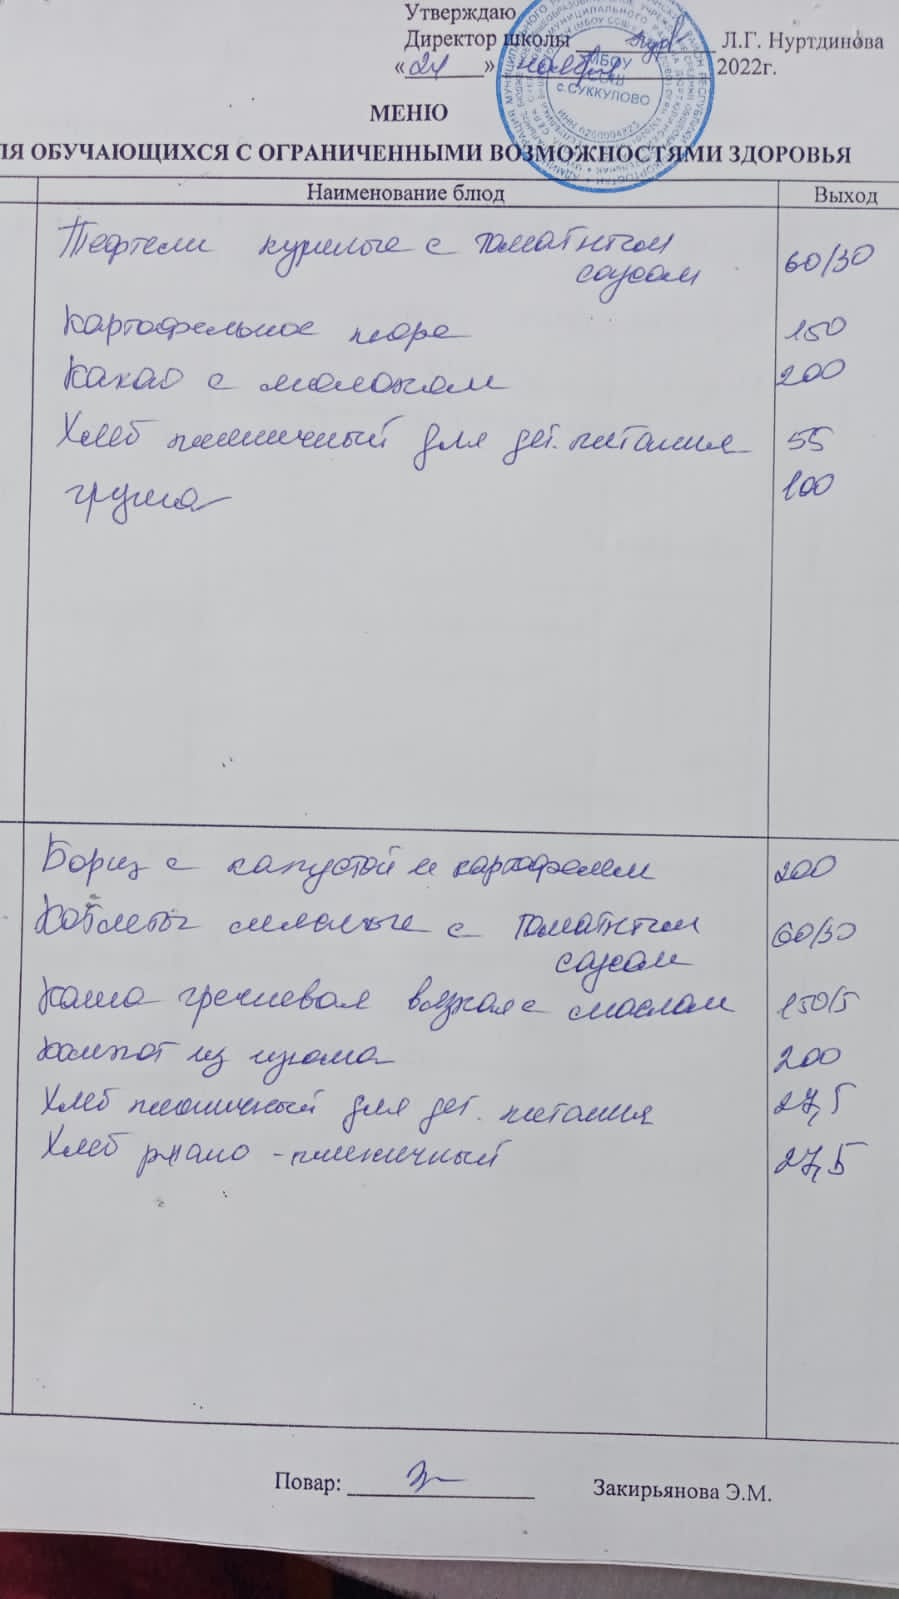 Утверждаю
Директор школы Л.Г. Нуртдинова
«21» ноября 2022г.
МБОУ
СОШ
с.СУККУЛОВО
МЕНЮ
ЛЯ ОБУЧАЮЩИХСЯ С ОГРАНИЧЕННЫМИ ВОЗМОЖНОСТЯМИ ЗДОРОВЬЯ
Наименование блюд Выход
Тефтели куриные с томатным
соусом 60/30
Картофельное пюре 150
Какао с молоком 200
Хлеб пшеничный для дет. питания 55
груша 100
Борщ с капустой и картофелем 200
Котлеты с томатным 60/30
соусом
Каша гречневая вязкая с маслом 150/5
Компот из изюма 200
Хлеб пшеничный для дет. питания 27,5
Хлеб ржано-пшеничный 27,5
Повар: Закирьянова Э.М.